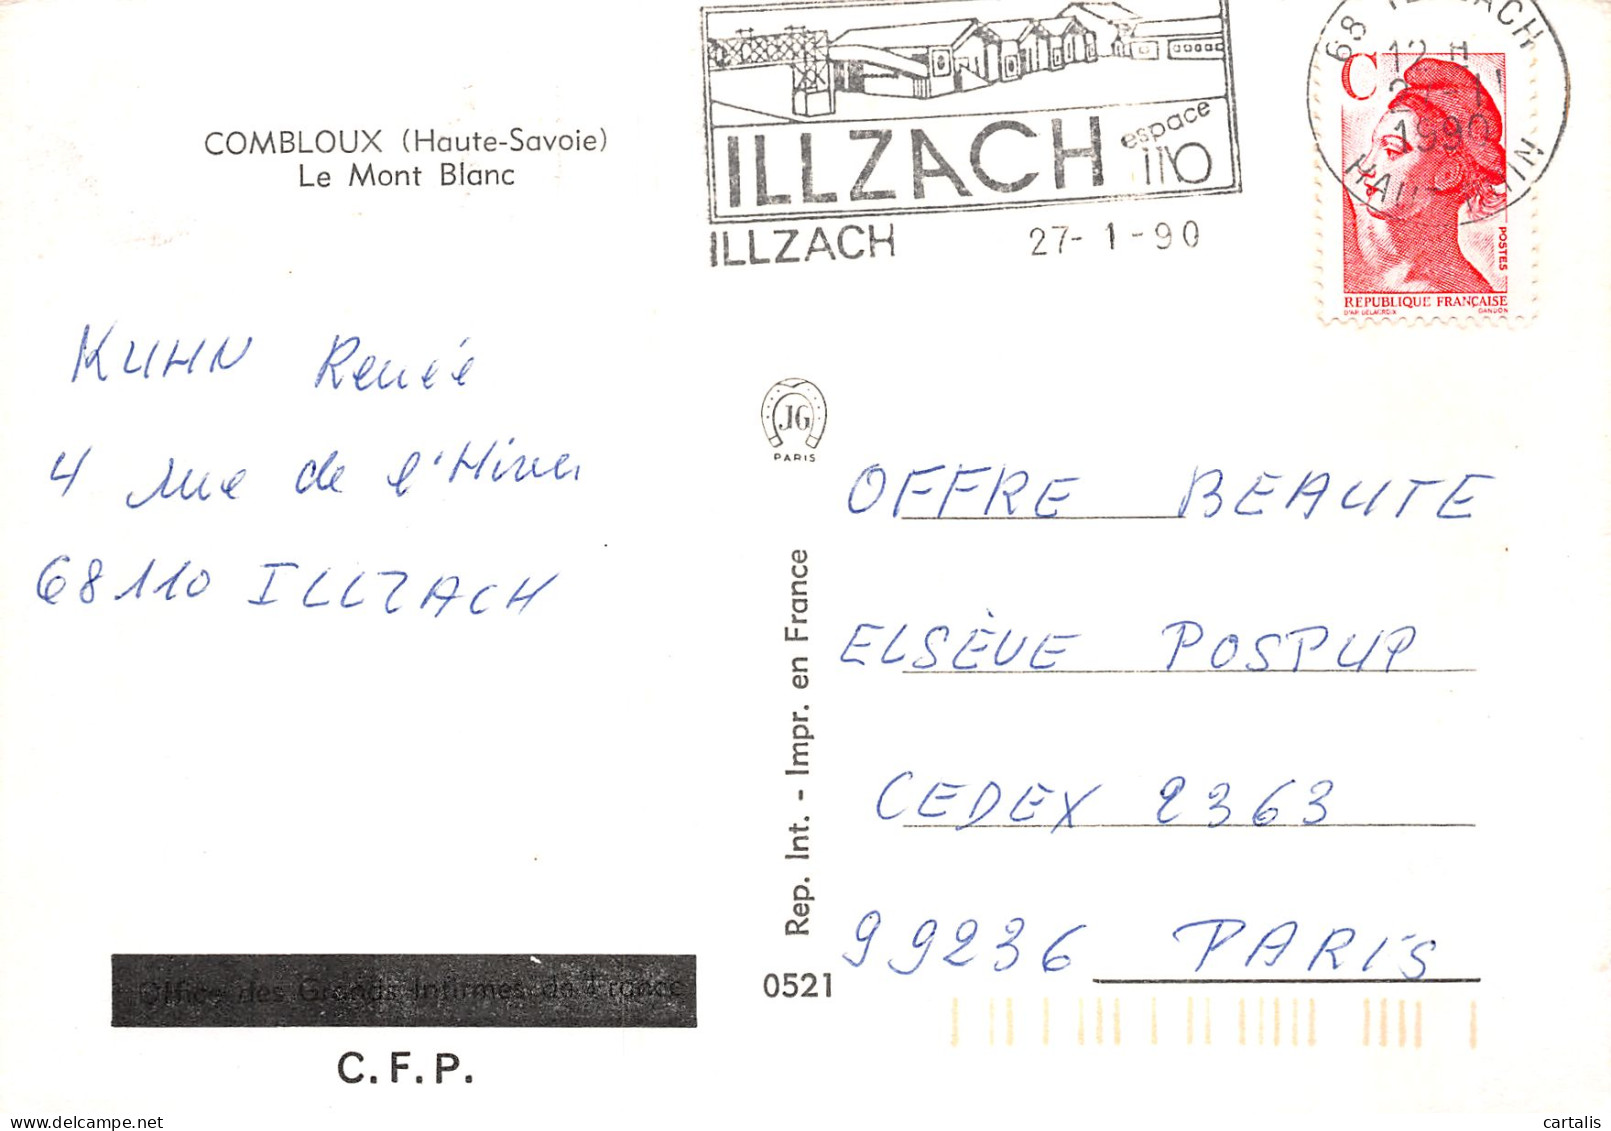 COMBLOUX (Haute-Savoie)
Le Mont Blanc
ILLZACH espace 110
ILLZACH 27-1-90
68 ILLZACH
12 H
1990
C
POSTES
REPUBLIQUE FRANÇAISE
D'AP. DELACROIX GANDON
KUHN Renée
4 rue de l'Hiver
68110 ILLZACH
JG
PARIS
OFFRE BEAUTE
ELSÈVE POSPUP
CEDEX 2363
99236 PARIS
Rep. Int. - Impr. en France
0521
Office des Grands Infirmes de France
C.F.P.
cartalis
delcampe.net